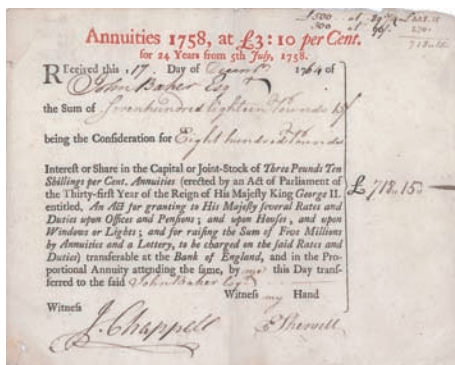 £500 at 89
300 at 90
Annuities 1758, at £3 : 10 per Cent.
for 24 Years from 5th July, 1758.
REceived this 17 Day of 1764 of
John Baker Esqr
the Sum of Sevenhundred Eighteen Pounds 15/
being the Consideration for Eight hundred Pounds
Interest or Share in the Capital or Joint-Stock of Three Pounds Ten
Shillings per Cent. Annuities (erected by an Act of Parliament of
the Thirty-first Year of the Reign of His Majesty King George II.
entitled, An Act for granting to His Majesty several Rates and
Duties upon Offices and Pensions; and upon Houses, and upon
Windows or Lights; and for raising the Sum of Five Millions
by Annuities and a Lottery, to be charged on the said Rates and
Duties) transferable at the Bank of England, and in the Pro-
portional Annuity attending the same, by me this Day trans-
ferred to the said John Baker Esqr
£ 718.15
Witness my Hand
Witness
J. Chappell
Sherwell